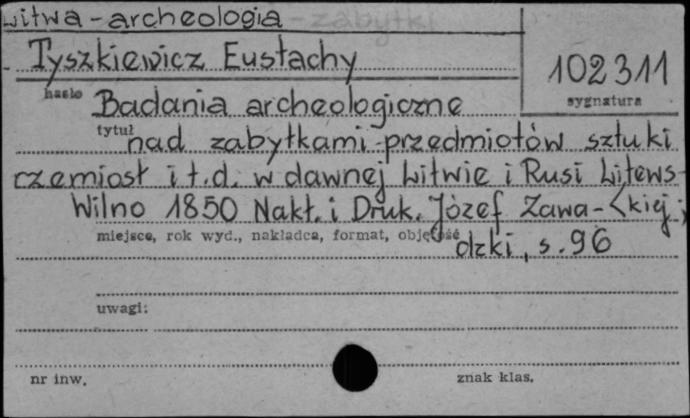 Litwa - archeologia - zabytki
Tyszkiewicz Eustachy
102311
hasło
sygnatura
Badania archeologiczne
tytuł
nad zabytkami przedmiotów sztuki
rzemiosł i t.d. w dawnej Litwie i Rusi Litews-
Wilno 1850 Nakł. i Druk. Józef Zawa- <kiej;
miejsce, rok wyd., nakładca, format, objętość
dzki, s. 96
uwagi:
nr inw.
znak klas.